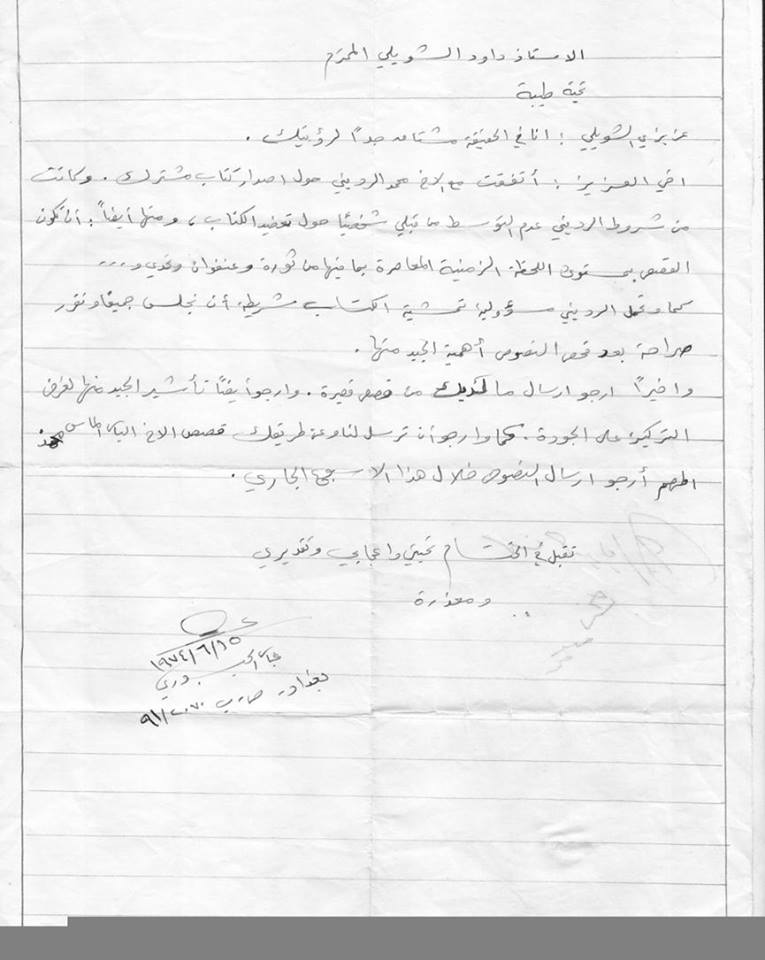 الاستاذ داود الشويلي المحترم
تحية طيبة
عزيزي الشويلي : انا في الحقيقة مشتاق جداً لرؤيتك .
اخي العزيز : أتفقت مع الاخ محمد الرديني حول اصدار كتاب مشترك . وكانت
من شروط الرديني عدم التوسط من قبلي شخصياً حول تعضيد الكتاب ، ومنها أيضاً : أن تكون
القصص بمستوى اللحظة الزمنية المعاصرة بما فيها من ثورة وعنفوان وتحدي و ...
كما وتحمل الرديني مسؤولية تمشية الكتاب شريطة أن نجلس جميعاً ونقرر
صراحة بعد فحص النصوص أهمية الجيد منها .
واخيراً ارجو ارسال ما لديك من قصص قصيرة . وارجو أيضاً تأشير الجيد منها لغرض
التركيز على الجودة . كما وارجو أن ترسل لنا وعن طريقك قصص الاخ الياس الماس محمد
المهم أرجو ارسال النصوص خلال هذا الاسبوع الجاري .
تقبل في الختام تحيتي واعجابي وتقديري
ومعذرة ..
١٩٧٤/٦/١٥
الجبوري
بغداد - ص.ب